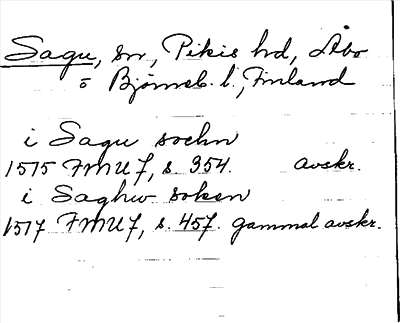 Sagu, sn, Pikis hd, Åbo
o Bjørneb. l., Finland
i Sagu sochn
1515 FMU 7, s. 354. avskr.
i Saghw soken
1517 FMU 7, s. 457. gammal avskr.